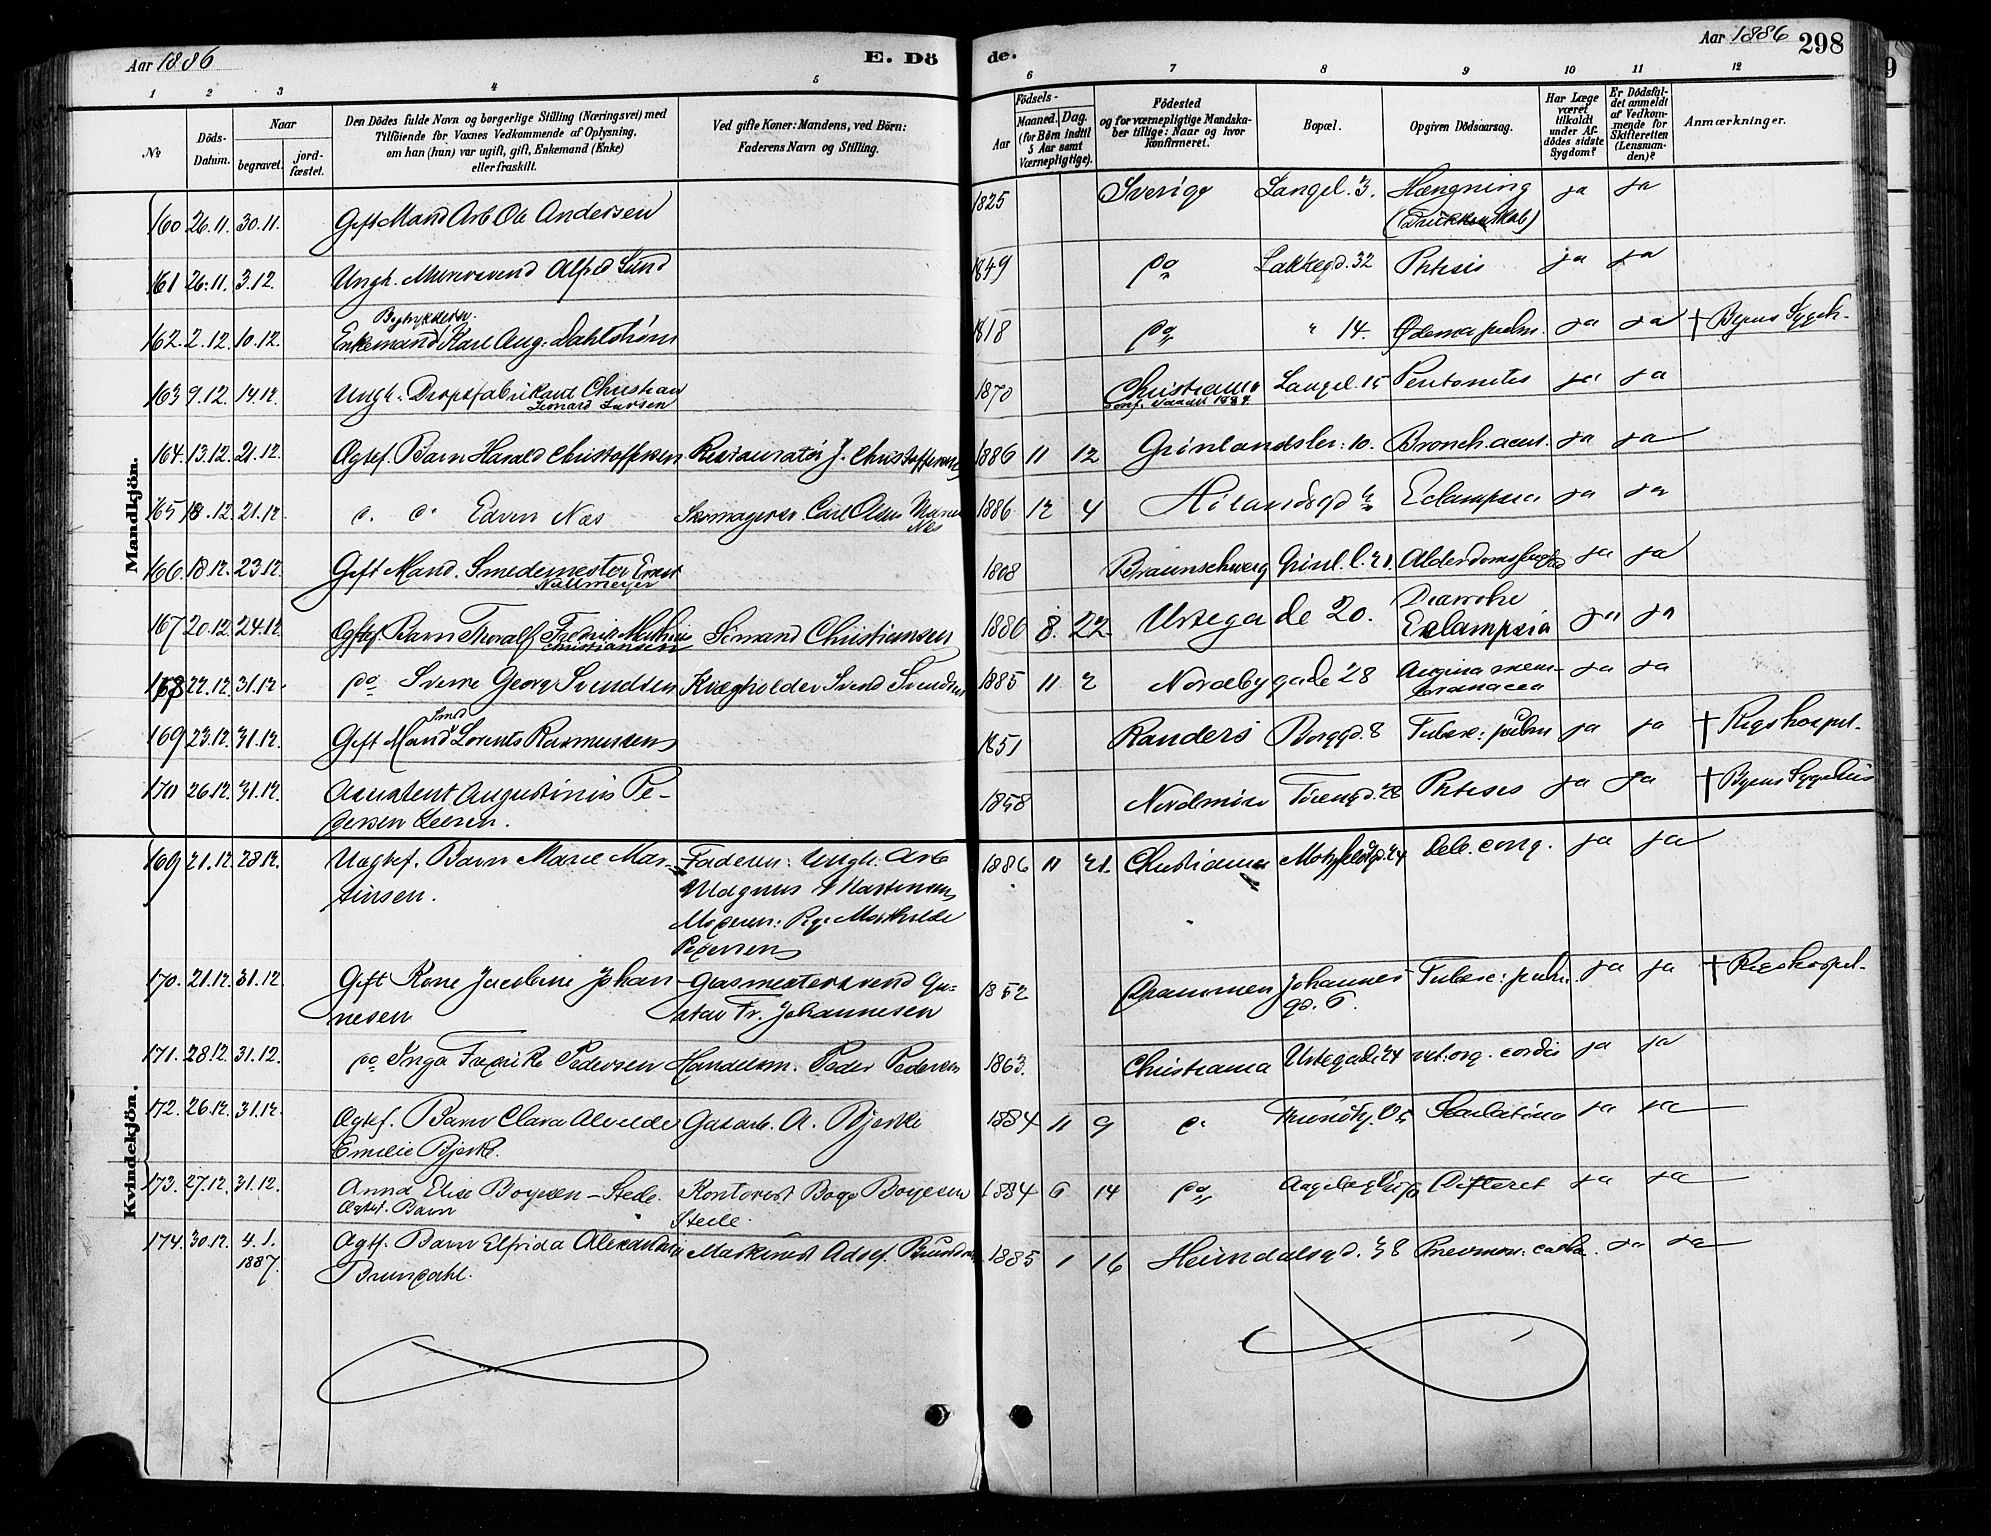 Aar 1886
E. Dö
de.
Aar 1886
298
1 2 3 4 5 6 7 8 9 10 11 12
No
Döds-
Datum.
Naar
begravet.
jord-
fæstet.
Den Dödes fulde Navn og borgerlige Stilling (Næringsvei) med
Tilföiende for Voxnes Vedkommende af Oplysning,
om han (hun) var ugift, gift, Enkemand (Enke)
eller fraskilt.
Ved gifte Koner: Mandens, ved Börn:
Faderens Navn og Stilling.
Födsels-
Aar
Maaned. Dag.
(for Børn indtil
5 Aar samt
Værnepligtige).
Födested
og for værnepligtige Mandska-
ber tillige: Naar og hvor
konfirmeret.
Bopæl.
Opgiven Dödsaarsag.
Har Læge
været
tilkaldt
under Af-
dödes sidste
Sygdom?
Er Dödsfal-
det anmeldt
af Vedkom-
mende for
Skifteretten
(Lensman-
den)?
Anmærkninger.
Mandkjön.
160 26.11. 30.11. Gift Mand Arb Ole Andersen 1825 Sverige Langel. 3. Hængning ja ja
(Drikkenskab)
161 26.11. 3.12. Ungk. Murersvend Alfred Lund 1849 do Lakkegd. 32 Phtisis ja ja
Bogtrykkersv.
162. 2.12. 10.12. Enkemand Karl Aug. Dahlstrøm 1818 do " 14. Ødema pulm. ja ja † Byens Sygeh.
163 9.12. 14.12. Ungk. Dropsfabrikant Christian 1870 Christiania Langel. 15 Peritonitis ja ja
Leonard Larsen
164. 13.12. 21.12. Ægtef. Barn Harald Christoffersen Restauratør J. Christoffersen 1886 11 12 Grønlandsler: 10. Bronch. acut. ja ja
165 18.12. 21.12. d. d. Edvin Næs Skomagersv. Carl Olsen 1886 12 4 Eclampsia ja ja
Næs
166. 18.12. 23.12. Gift Mand. Smedemester Ernst 1808 Braunschweig Grønl. l. 21. ja ja
167 20.12. 24.12. Ægtef. Barn Thoralf Fredrik Sømand Christiansen 1880 8. 22. Urtegade 20. Diarrohe ja ja
Christiansen Eclampsia
168 22.12. 31.12. do Sverre Georg Svendsen Kvægholder Svend Svendsen 1885 11 2 Nordbygade 28 Angina mem- ja ja
branacea
Smed
169 23.12. 31.12. Gift Mand Lorents Rasmussen 1851 Randers Borggd. 8 Tuberc: pulm ja ja † Rigshospit.
170 26.12. 31.12. Assistent Augustinus Pe- 1858 Nordmøre 28 Phtisis ja ja † Byens Sygehus
dersen
Kvindekjön.
169 21.12. 28.12. Uægtef. Barn Marie Mar- Faderen: Ungk. Arb 1886 11 21. Christiania Motzfeldtgd. 24 Deb. cong. ja ja
tinsen. Magnus Martinsen
Moderen: Pige Mathilde
Pedersen
170. 21.12. 31.12. Gift Kone Jacobine Johan- Glasmestersvend Gu- 1852 Drammen Johannes- Tuberc: pulm. ja ja † Rigshospit.
nesen stav Fr. Johannesen gd. 6.
171. 28.12. 31.12. do Inga Fredrikke Pedersen Handelsm. Peder Pedersen 1863. Christiania Urtegade 24 vit. org. cordis ja ja
172. 26.12. 31.12. Ægtef. Barn Clara Alvilde Gasarb. A. Bjerke 1884 11 9 d. Scarlatina ja ja
Emilie Bjerke.
173. 27.12. 31.12. Anna Elise Boyesen-Stede. Kontorist Boye Boyesen 1884 6 14 do Difterit ja ja
Ægtef. Barn Stede.
174. 30.12. 4.1. Ægtf. Barn Elfrida Alexandra Maskinist Adolf Brundahl 1885 1 16 Heimdalsgd. 38 ja ja
1887. Brundahl.